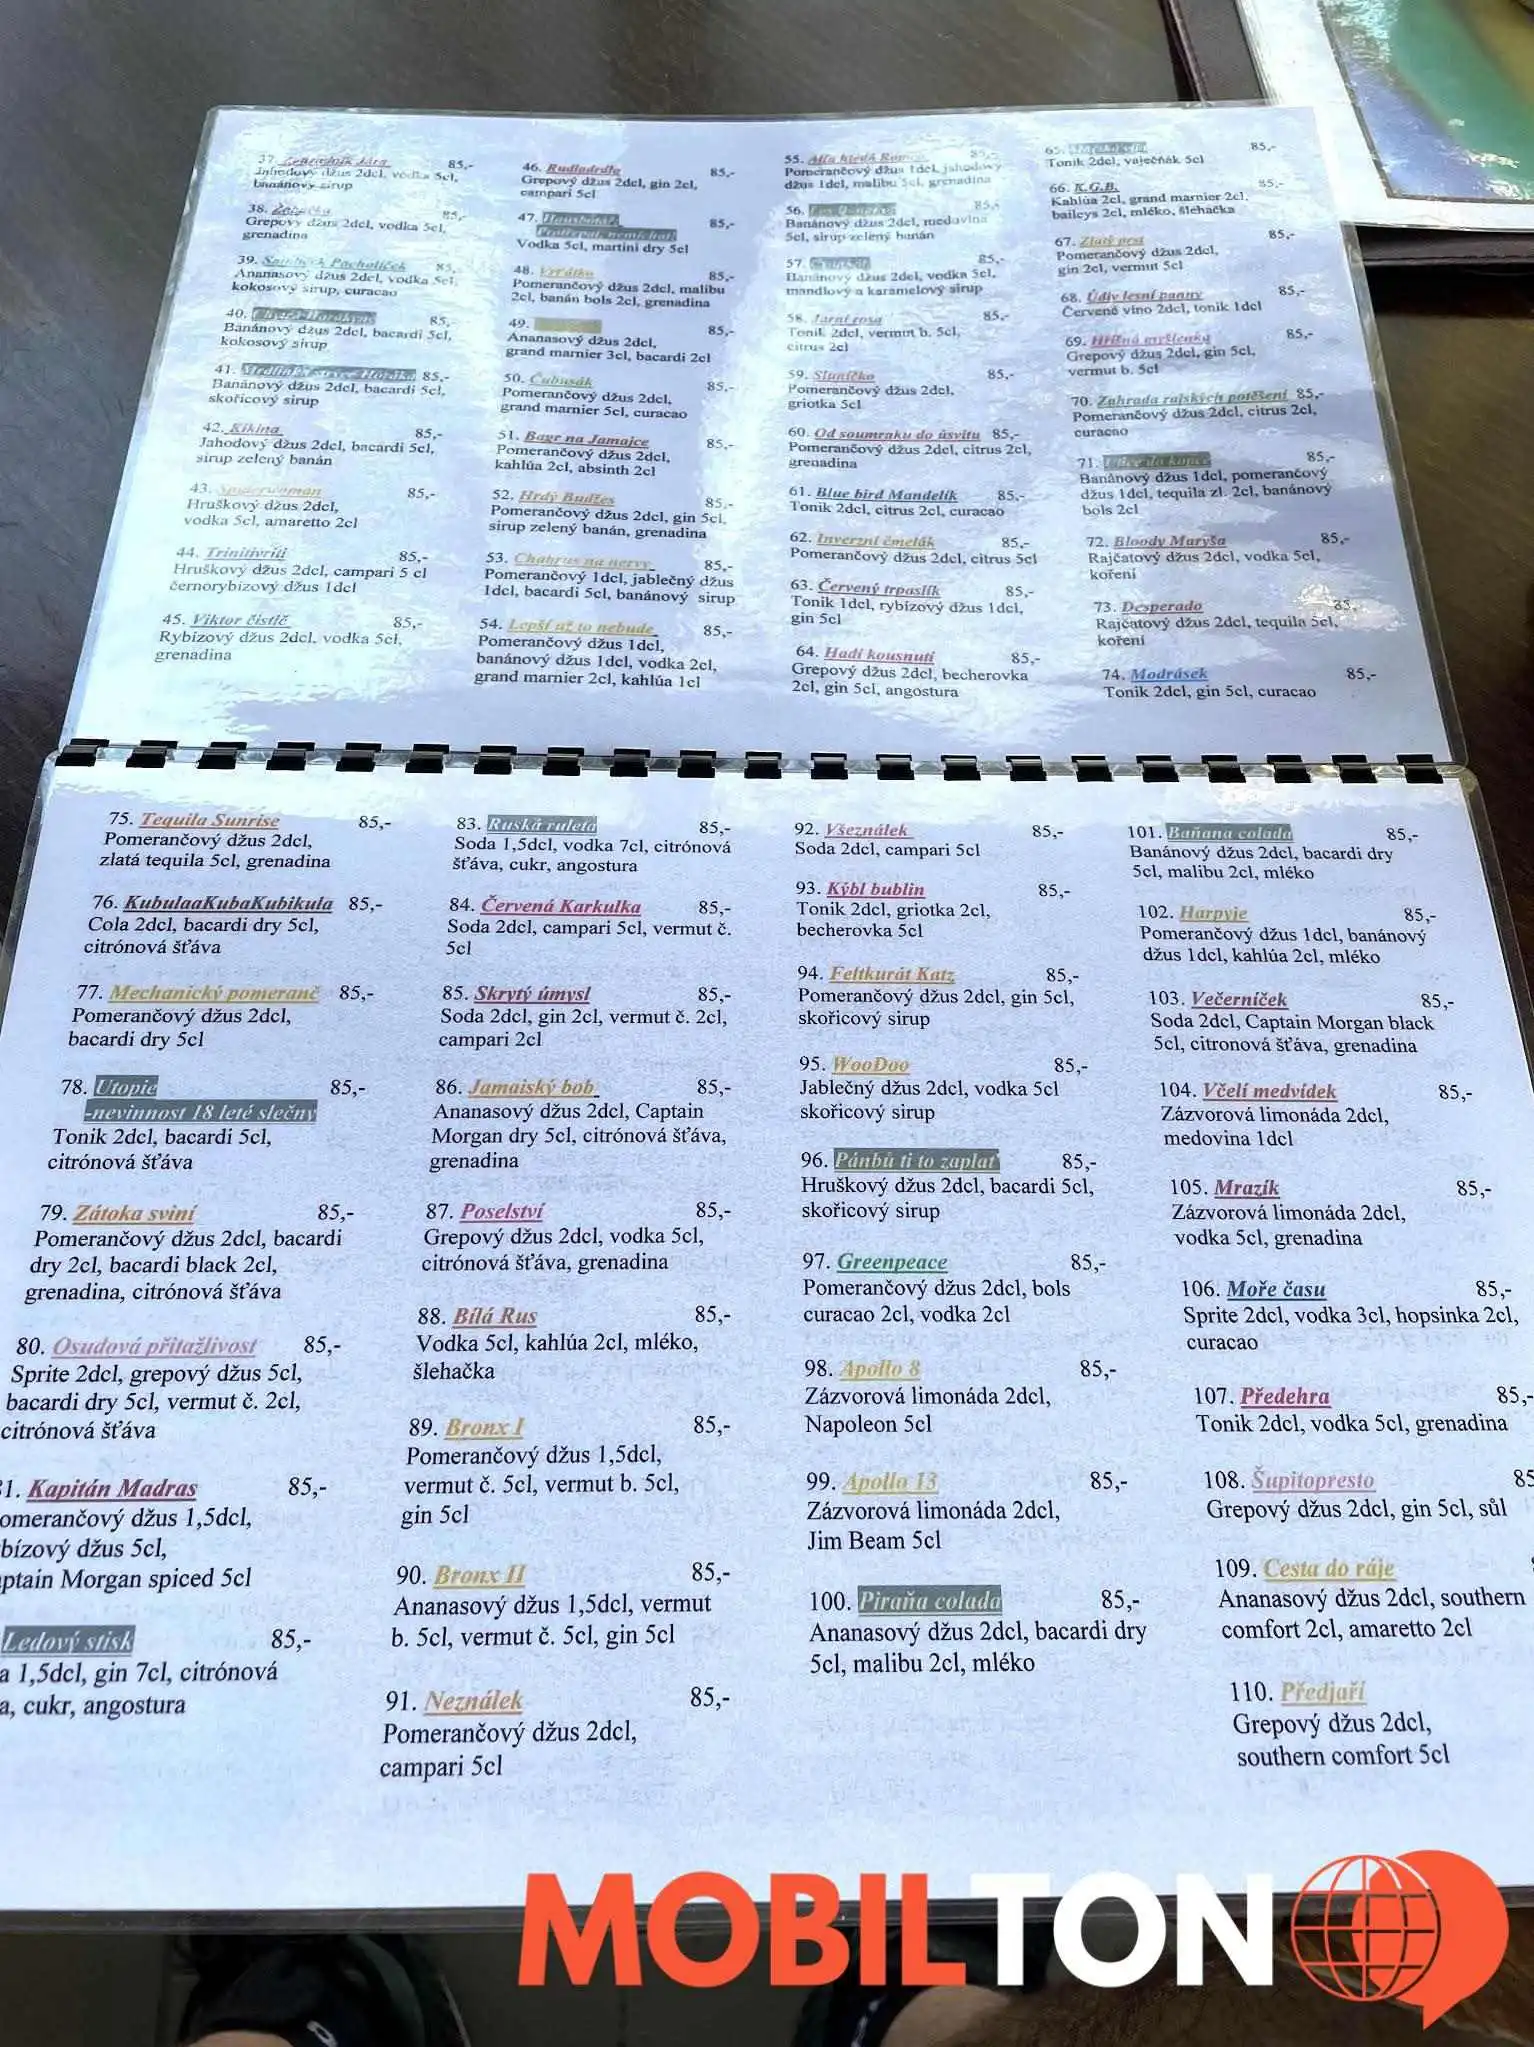 37.
85,-
Jahodový džus 2dcl, vodka 5cl,
banánový sirup
38.
85,-
Grepový džus 2dcl, vodka 5cl,
grenadina
39. Pacholíček
85,-
Ananasový džus 2dcl, vodka 5cl,
kokosový sirup, curacao
40.
85,-
Banánový džus 2dcl, bacardi 5cl,
kokosový sirup
41.
85,-
Banánový džus 2dcl, bacardi 5cl,
skořicový sirup
42. Kikina
85,-
Jahodový džus 2dcl, bacardi 5cl,
sirup zelený banán
43. Spiderwoman
85,-
Hruškový džus 2dcl,
vodka 5cl, amaretto 2cl
44.
85,-
Hruškový džus 2dcl, campari 5 cl
černorybizový džus 1dcl
45. Viktor čistič
85,-
Rybízový džus 2dcl, vodka 5cl,
grenadina
46.
85,-
Grepový džus 2dcl, gin 2cl,
campari 5cl
47.
85,-
Vodka 5cl, martini dry 5cl
48. Vrťátko
85,-
Pomerančový džus 2dcl, malibu
2cl, banán bols 2cl, grenadina
49.
85,-
Ananasový džus 2dcl,
grand marnier 3cl, bacardi 2cl
50. Čubusák
85,-
Pomerančový džus 2dcl,
grand marnier 5cl, curacao
51. Bagr na Jamajce
85,-
Pomerančový džus 2dcl,
kahlúa 2cl, absinth 2cl
52. Hrdý Budžes
85,-
Pomerančový džus 2dcl, gin 5cl,
sirup zelený banán, grenadina
53. Chabrus na nervy
85,-
Pomerančový 1dcl, jablečný džus
1dcl, bacardi 5cl, banánový sirup
54. Lepší už to nebude
85,-
Pomerančový džus 1dcl,
banánový džus 1dcl, vodka 2cl,
grand marnier 2cl, kahlúa 1cl
55.
85,-
Pomerančový džus 1dcl, jahodový
džus 1dcl, malibu 5cl, grenadina
56.
85,-
Banánový džus 2dcl, medovina
5cl, sirup zelený banán
57.
85,-
Banánový džus 2dcl, vodka 5cl,
mandlový a karamelový sirup
58. Jarní rosa
85,-
Tonik 2dcl, vermut b. 5cl,
citrus 2cl
59. Sluníčko
85,-
Pomerančový džus 2dcl,
griotka 5cl
60. Od soumraku do úsvitu 85,-
Pomerančový džus 2dcl, citrus 2cl,
grenadina
61. Blue bird Mandelík
85,-
Tonik 2dcl, citrus 2cl, curacao
62. Inverzní čmelák
85,-
Pomerančový džus 2dcl, citrus 5cl
63. Červený trpaslík
85,-
Tonik 1dcl, rybízový džus 1dcl,
gin 5cl
64. Hadí kousnutí
85,-
Grepový džus 2dcl, becherovka
2cl, gin 5cl, angostura
65.
85,-
Tonik 2dcl, vaječňák 5cl
66. K.G.B.
85,-
Kahlúa 2cl, grand marnier 2cl,
baileys 2cl, mléko, šlehačka
67. Zlatý prst
85,-
Pomerančový džus 2dcl,
gin 2cl, vermut 5cl
68. Údiv lesní panny
85,-
Červené víno 2dcl, tonik 1dcl
69. Hříšná myšlenka
85,-
Grepový džus 2dcl, gin 5cl,
vermut b. 5cl
70. Zahrada rajských potěšení 85,-
Pomerančový džus 2dcl, citrus 2cl,
curacao
71. Ulice do kopce
85,-
Banánový džus 1dcl, pomerančový
džus 1dcl, tequila zl. 2cl, banánový
bols 2cl
72. Bloody Maryša
85,-
Rajčatový džus 2dcl, vodka 5cl,
koření
73. Desperado
85,-
Rajčatový džus 2dcl, tequila 5cl,
koření
74. Modrásek
85,-
Tonik 2dcl, gin 5cl, curacao
75. Tequila Sunrise
85,-
Pomerančový džus 2dcl,
zlatá tequila 5cl, grenadina
76. KubulaaKubaKubikula 85,-
Cola 2dcl, bacardi dry 5cl,
citrónová šťáva
77. Mechanický pomeranč 85,-
Pomerančový džus 2dcl,
bacardi dry 5cl
78. Utopie
85,-
-nevinnost 18 leté slečny
Tonik 2dcl, bacardi 5cl,
citrónová šťáva
79. Zátoka sviní
85,-
Pomerančový džus 2dcl, bacardi
dry 2cl, bacardi black 2cl,
grenadina, citrónová šťáva
80. Osudová přitažlivost
85,-
Sprite 2dcl, grepový džus 5cl,
bacardi dry 5cl, vermut č. 2cl,
citrónová šťáva
81. Kapitán Madras
85,-
omerančový džus 1,5dcl,
bízový džus 5cl,
ptain Morgan spiced 5cl
Ledový stisk
85,-
a 1,5dcl, gin 7cl, citrónová
a, cukr, angostura
83. Ruská ruleta
85,-
Soda 1,5dcl, vodka 7cl, citrónová
šťáva, cukr, angostura
84. Červená Karkulka
85,-
Soda 2dcl, campari 5cl, vermut č.
5cl
85. Skrytý úmysl
85,-
Soda 2dcl, gin 2cl, vermut č. 2cl,
campari 2cl
86. Jamaiský bob
85,-
Ananasový džus 2dcl, Captain
Morgan dry 5cl, citrónová šťáva,
grenadina
87. Poselství
85,-
Grepový džus 2dcl, vodka 5cl,
citrónová šťáva, grenadina
88. Bílá Rus
85,-
Vodka 5cl, kahlúa 2cl, mléko,
šlehačka
89. Bronx I
85,-
Pomerančový džus 1,5dcl,
vermut č. 5cl, vermut b. 5cl,
gin 5cl
90. Bronx II
85,-
Ananasový džus 1,5dcl, vermut
b. 5cl, vermut č. 5cl, gin 5cl
91. Neználek
85,-
Pomerančový džus 2dcl,
campari 5cl
92. Všeználek
85,-
Soda 2dcl, campari 5cl
93. Kýbl bublin
85,-
Tonik 2dcl, griotka 2cl,
becherovka 5cl
94. Feltkurát Katz
85,-
Pomerančový džus 2dcl, gin 5cl,
skořicový sirup
95. WooDoo
85,-
Jablečný džus 2dcl, vodka 5cl
skořicový sirup
96. Pánbů ti to zaplať
85,-
Hruškový džus 2dcl, bacardi 5cl,
skořicový sirup
97. Greenpeace
85,-
Pomerančový džus 2dcl, bols
curacao 2cl, vodka 2cl
98. Apollo 8
85,-
Zázvorová limonáda 2dcl,
Napoleon 5cl
99. Apollo 13
85,-
Zázvorová limonáda 2dcl,
Jim Beam 5cl
100. Piraňa colada
85,-
Ananasový džus 2dcl, bacardi dry
5cl, malibu 2cl, mléko
101. Baňana colada
85,-
Banánový džus 2dcl, bacardi dry
5cl, malibu 2cl, mléko
102. Harpyje
85,-
Pomerančový džus 1dcl, banánový
džus 1dcl, kahlúa 2cl, mléko
103. Večerníček
85,-
Soda 2dcl, Captain Morgan black
5cl, citronová šťáva, grenadina
104. Včelí medvídek
85,-
Zázvorová limonáda 2dcl,
medovina 1dcl
105. Mrazík
85,-
Zázvorová limonáda 2dcl,
vodka 5cl, grenadina
106. Moře času
85,-
Sprite 2dcl, vodka 3cl, hopsinka 2cl,
curacao
107. Předehra
85,-
Tonik 2dcl, vodka 5cl, grenadina
108. Šupitopresto
85
Grepový džus 2dcl, gin 5cl, sůl
109. Cesta do ráje
Ananasový džus 2dcl, southern
comfort 2cl, amaretto 2cl
110. Předjaří
Grepový džus 2dcl,
southern comfort 5cl
MOBILTON